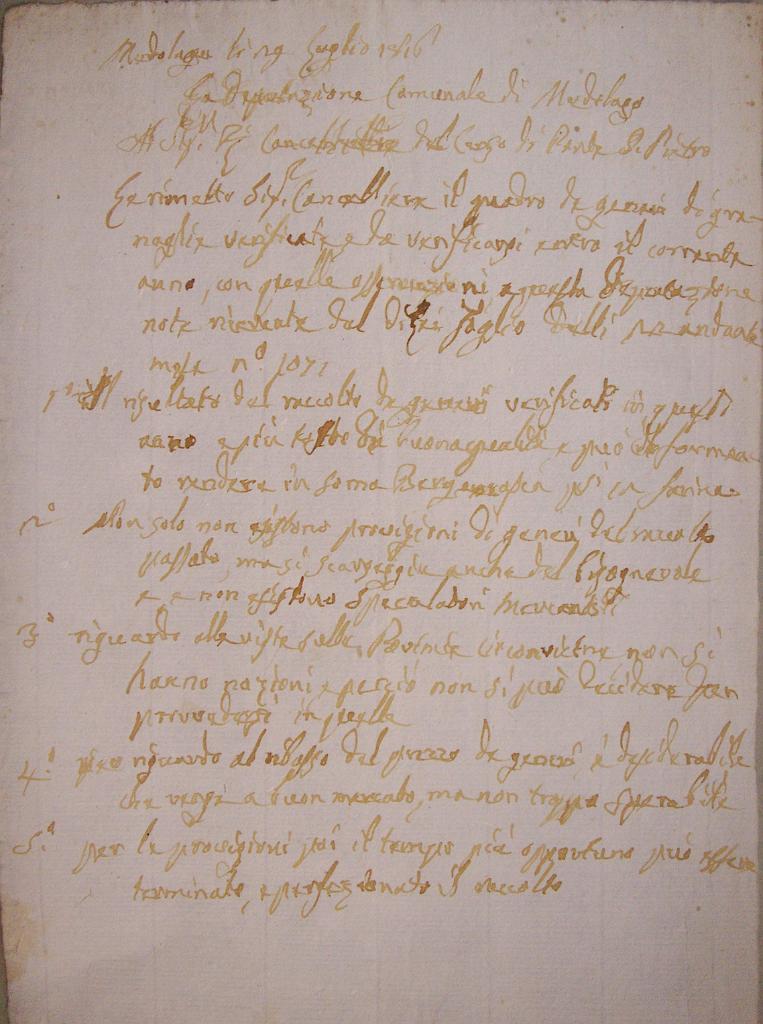 Madolago li 29 Luglio 1816
La Deputazione Comunale di Madolago
Al Sigr. Cancelliere del Censo di Ponte S. Pietro
Le rimetto Sigr. Cancelliere il quadro de generi di gra-
naglie verificate e da verificarsi entro il corrente
anno, con quelle osservazioni a questa Deputazione
note ricercate dal di Lei Foglio delli 22 andante
mese n.o 1071
1.o Il risultato del raccolto de generi verificati in questo
anno è più tosto di buona qualità, e può
to rendere in soma Bergamasca in farina
2.o Non solo non esistono provigioni di generi del raccolto
passato, ma si scarseggia anche del bisognevole
e non esistono Speculatori
3.o riguardo alle viste sulle Provincie circonvicine non si
hanno nozioni e perciò non si può decidere
in quelle
4.o riguardo al ribasso del prezzo de generi è desiderabile
che venga a buon mercato, ma non troppo sperabile
5.o per le provigioni poi il tempo più opportuno può essere
terminato, e perfezionato il raccolto